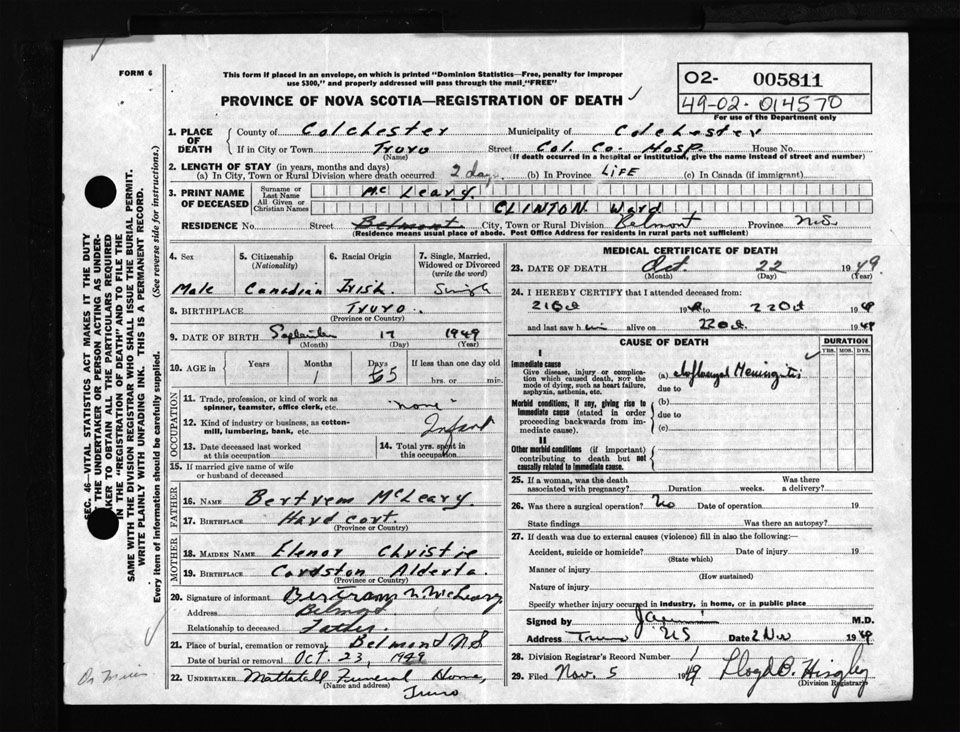 FORM 6
This form if placed in an envelope, on which is printed "Dominion Statistics—Free, penalty for improper
use $300," and properly addressed will pass through the mail "FREE"
PROVINCE OF NOVA SCOTIA—REGISTRATION OF DEATH
O2- 005811
49-02-014570
For use of the Department only
SEC. 46—VITAL STATISTICS ACT MAKES IT THE DUTY
OF THE UNDERTAKER OR PERSON ACTING AS UNDER-
TAKER TO OBTAIN ALL THE PARTICULARS REQUIRED
IN THE "REGISTRATION OF DEATH" AND TO FILE THE
SAME WITH THE DIVISION REGISTRAR WHO SHALL ISSUE THE BURIAL PERMIT.
WRITE PLAINLY WITH UNFADING INK. THIS IS A PERMANENT RECORD.
Every item of information should be carefully supplied. (See reverse side for instructions.)
1. PLACE OF DEATH
County of Colchester Municipality of Colchester
If in City or Town Truro Street Col. Co. Hosp. House No.
(Name) (If death occurred in a hospital or institution, give the name instead of street and number)
2. LENGTH OF STAY (in years, months and days)
(a) In City, Town or Rural Division where death occurred 2 days (b) In Province LIFE (c) In Canada (if immigrant)
3. PRINT NAME OF DECEASED
Surname or Last Name McLeary.
All Given or Christian Names CLINTON Ward
RESIDENCE No. Street Belmont City, Town or Rural Division Belmont Province N.S.
(Residence means usual place of abode. Post Office Address for residents in rural parts not sufficient)
4. Sex 5. Citizenship (Nationality) 6. Racial Origin 7. Single, Married, Widowed or Divorced (write the word)
Male Canadian Irish Single
8. BIRTHPLACE Truro.
(Province or Country)
9. DATE OF BIRTH September 17 1949
(Month) (Day) (Year)
10. AGE in Years Months Days If less than one day old
1 5 hrs. or min.
OCCUPATION
11. Trade, profession, or kind of work as spinner, teamster, office clerk, etc. "none"
12. Kind of industry or business, as cotton-mill, lumbering, bank, etc. Infant
13. Date deceased last worked at this occupation 14. Total yrs. spent in this occupation
15. If married give name of wife or husband of deceased
FATHER
16. NAME Bertrem McLeary.
17. BIRTHPLACE Hard cort.
(Province or Country)
MOTHER
18. MAIDEN NAME Elenor Christie
19. BIRTHPLACE Cardston Alderta.
(Province or Country)
20. Signature of informant Bertram McLeary
Address Belmont
Relationship to deceased Father
21. Place of burial, cremation or removal Belmont NS
Date of burial or removal Oct. 23, 1949
22. UNDERTAKER Mattatall Funeral Home,
(Name and address) Truro
MEDICAL CERTIFICATE OF DEATH
23. DATE OF DEATH Oct. 22 1949
(Month) (Day) (Year)
24. I HEREBY CERTIFY that I attended deceased from:
21 Oct 1949 to 22 Oct 1949
and last saw him alive on 22 Oct 1949
CAUSE OF DEATH DURATION
YRS. MOS. DYS.
I
Immediate cause
Give disease, injury or complication which caused death, NOT the mode of dying, such as heart failure, asphyxia, asthenia, etc.
(a) Meningitis
due to
Morbid conditions, if any, giving rise to immediate cause (stated in order proceeding backwards from immediate cause).
(b)
due to
(c)
II
Other morbid conditions (if important) contributing to death but not causally related to immediate cause.
25. If a woman, was the death associated with pregnancy? Duration weeks. Was there a delivery?
26. Was there a surgical operation? No Date of operation 19
State findings Was there an autopsy?
27. If death was due to external causes (violence) fill in also the following:
Accident, suicide or homicide? Date of injury 19
(State which)
Manner of injury
(How sustained)
Nature of injury
Specify whether injury occurred in industry, in home, or in public place
Signed by M.D.
Address Truro NS Date 2 Nov 1949
28. Division Registrar's Record Number 1
29. Filed Nov. 5 1949 Lloyd B. Hingley
(Division Registrar)